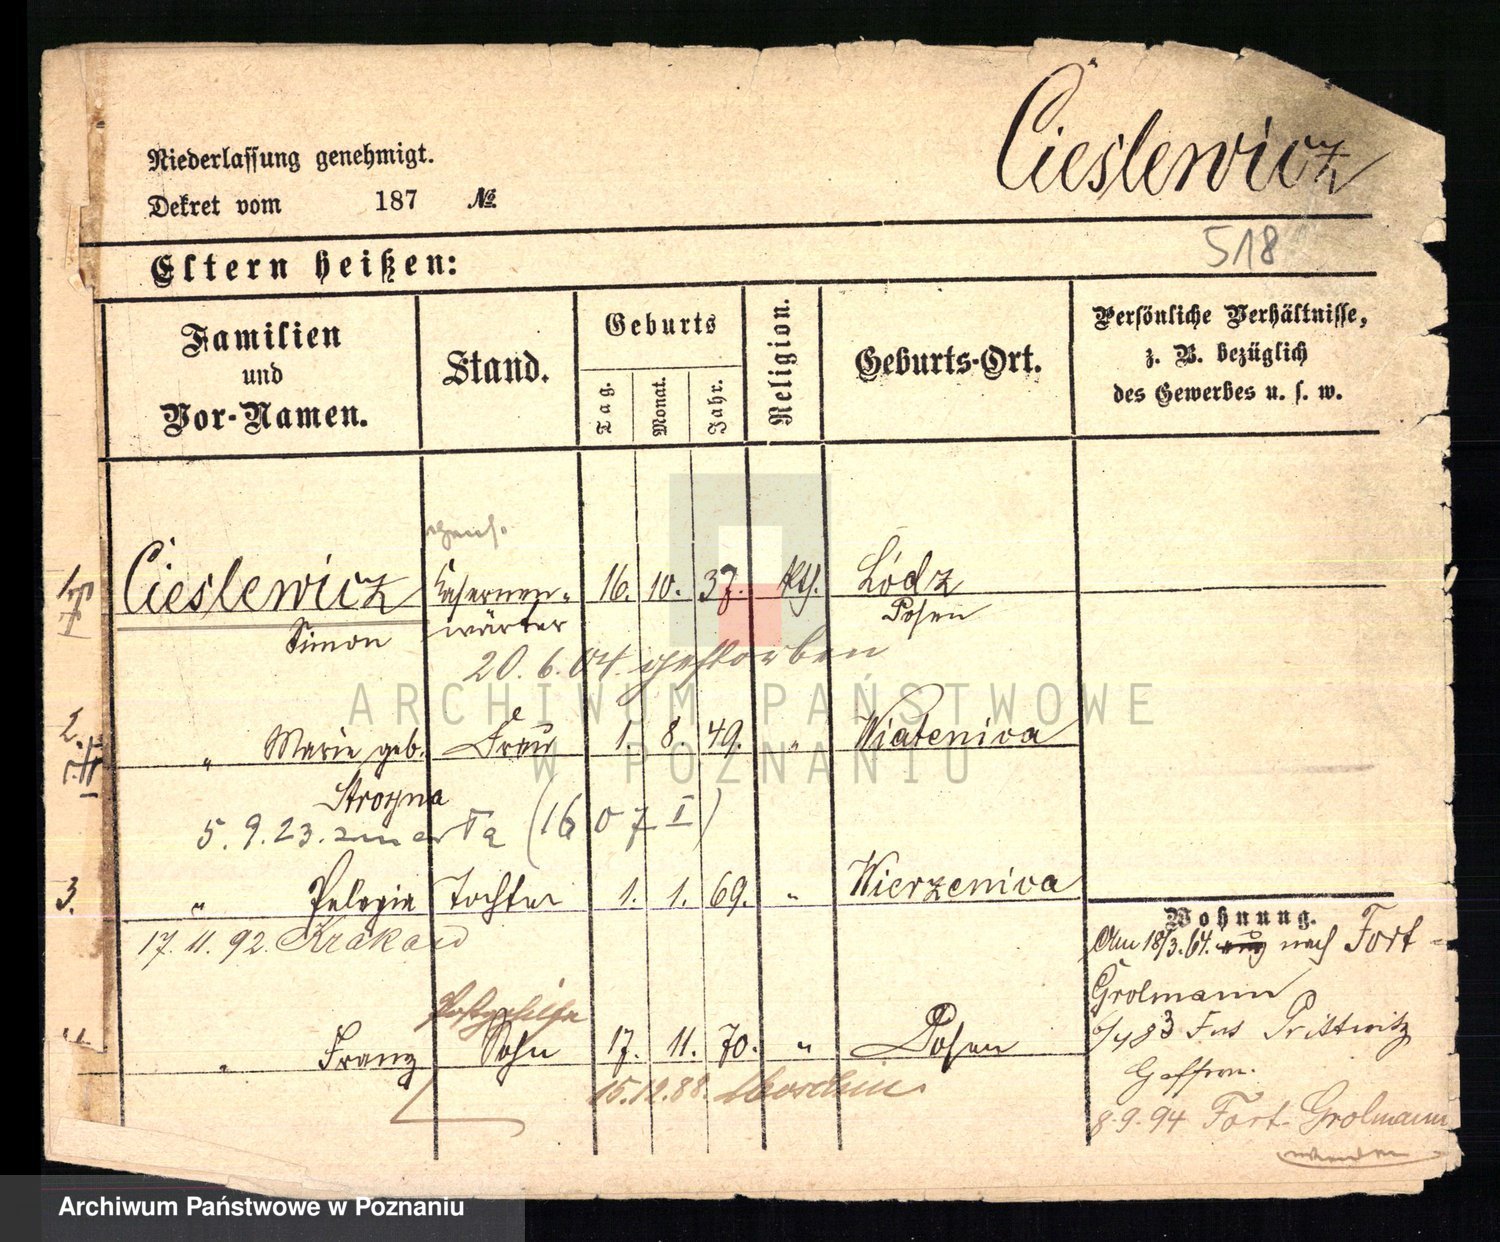 Cieslewicz
Niederlassung genehmigt.
Dekret vom 187 №
518
Eltern heißen:
Familien und Vor-Namen.
Stand.
Geburts
Tag.
Monat.
Jahr.
Religion.
Geburts-Ort.
Persönliche Verhältnisse,
z. B. bezüglich
des Gewerbes u. s. w.
1. Cieslewicz Kasernen- 16. 10. 37. kth. Lódz
Simon wärter Posen
20. 6. 04. gestorben
2. " Marie geb. Frau 1. 8. 49. " Wiateniva
Stroyna
5. 9. 23. zmarła (16 07 I)
3. " Pelagia Tochter 1. 1. 69. " Wierzeniva
17. 11. 92. Krakau
Wohnung.
Am 18/3. 64. nach Fort-
Grolmann
Postgehilfe
" Franz Sohn 17. 11. 70. " Posen
6/4 83 Fort Prittwitz
Gaffron.
15. 12. 88.
8. 9. 94 Fort Grolmann
wenden
ARCHIWUM PAŃSTWOWE
W POZNANIU
Archiwum Państwowe w Poznaniu